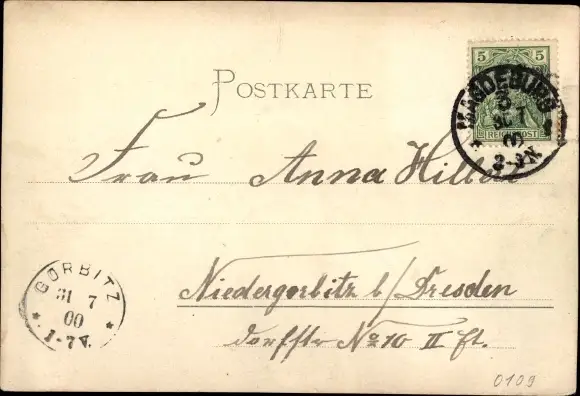 POSTKARTE
5 5
REICHSPOST
MAGDEBURG
31 7
00
2-3 N.
Frau Anna Hiller
Niedergorbitz b/Dresden
Dorfstr No 10 II Et.
GORBITZ
31 7
00
1-7 V.
0109